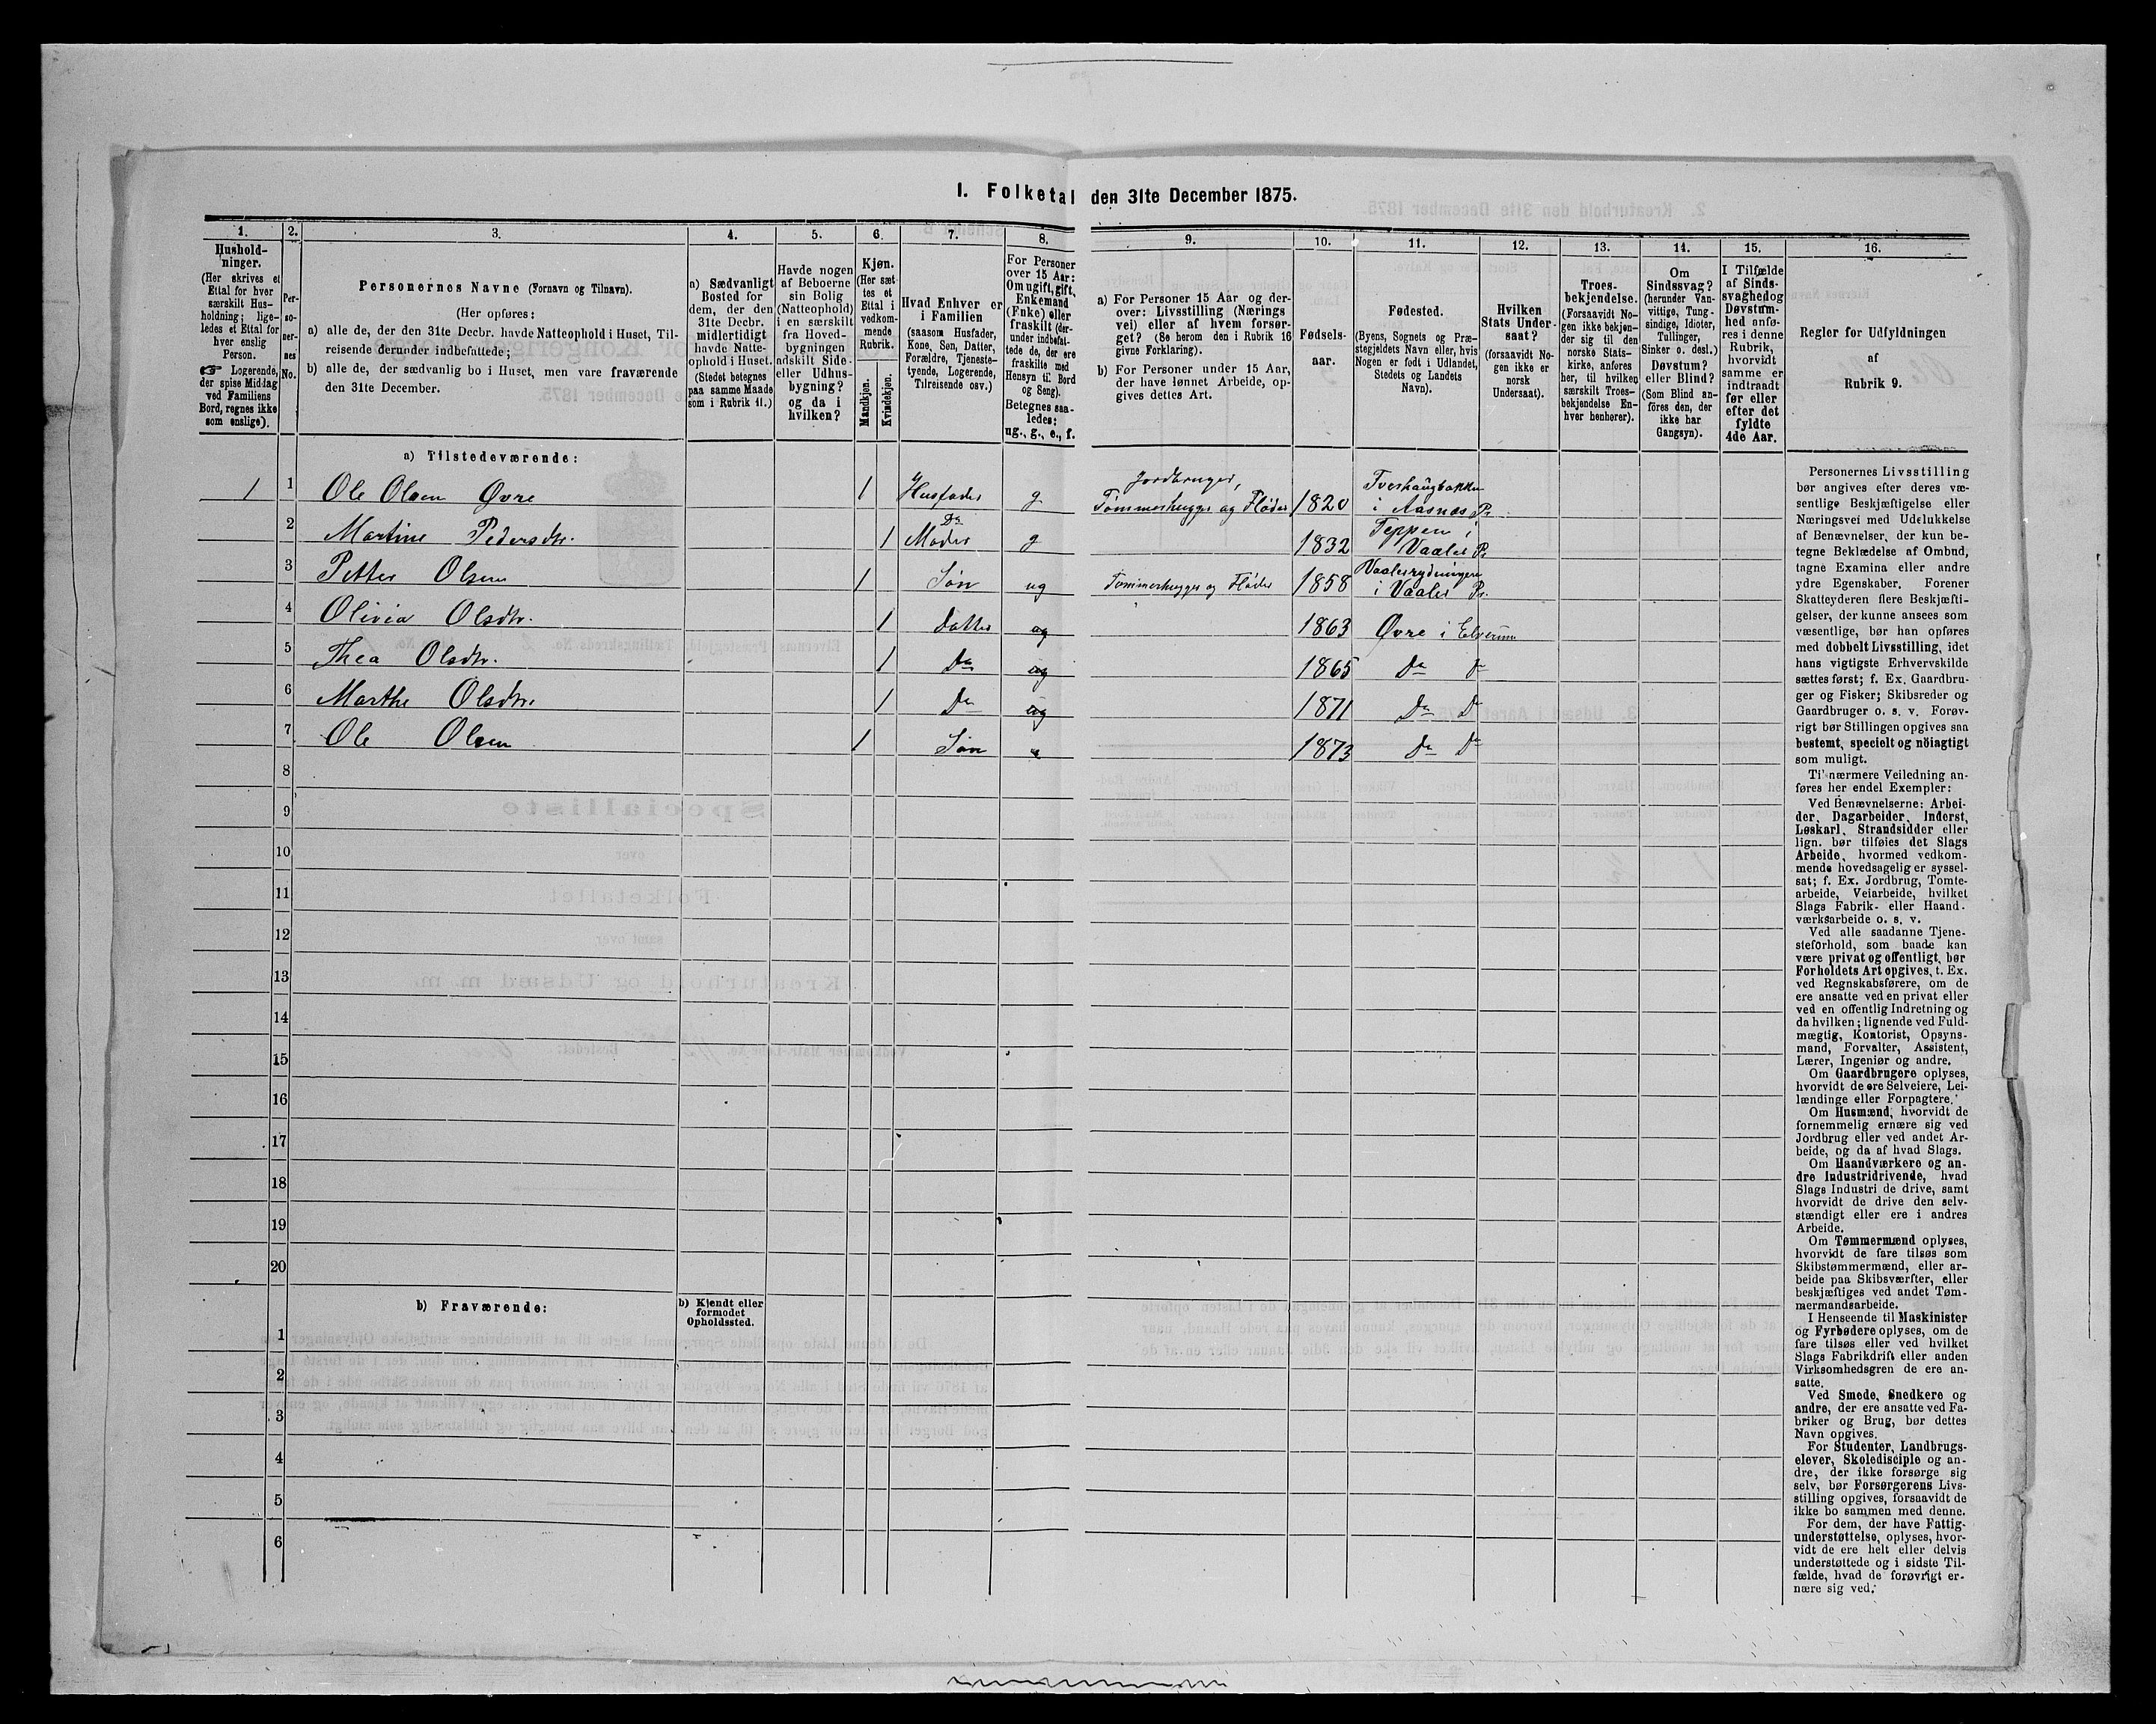 I. Folketal den 31te December 1875.
1.
Hushold-
ninger.
(Her skrives et
Ettal for hver
særskilt Hus-
holdning; lige-
ledes et Ettal for
hver enslig
Person.
☞ Logerende,
der spise Middag
ved Familiens
Bord, regnes ikke
som enslige).
2.
Per-
so-
ner-
nes
No.
3.
Personernes Navne (Fornavn og Tilnavn).
(Her opføres:
a) alle de, der den 31te Decbr. havde Natteophold i Huset, Til-
reisende derunder indbefattede;
b) alle de, der sædvanlig bo i Huset, men vare fraværende
den 31te December.
4.
a) Sædvanligt
Bosted for
dem, der den
31te Decbr.
midlertidigt
havde Natte-
ophold i Huset.
(Stedet betegnes
paa samme Maade
som i Rubrik 11.)
5.
Havde nogen
af Beboerne
sin Bolig
(Natteophold)
i en særskilt
fra Hoved-
bygningen
adskilt Side-
eller Udhus-
bygning?
og da i
hvilken?
6.
Kjøn.
(Her sæt-
tes et
Ettal i
vedkom-
mende
Rubrik.
Mandkjøn.
Kvindekjøn.
7.
Hvad Enhver er
i Familien
(saasom Husfader,
Kone, Søn, Datter,
Forældre, Tjeneste-
tyende, Logerende,
Tilreisende osv.)
8.
For Personer
over 15 Aar:
Om ugift, gift,
Enkemand
(Enke) eller
fraskilt (der-
under indbefat-
tede de, der ere
fraskilte med
Hensyn til Bord
og Seng).
Betegnes saa-
ledes:
ug., g., e., f.
9.
a) For Personer 15 Aar og der-
over: Livsstilling (Nærings
vei) eller af hvem forsør-
get? (Se herom den i Rubrik 16
givne Forklaring).
b) For Personer under 15 Aar,
der have lønnet Arbeide, op-
gives dettes Art.
10.
Fødsels-
aar.
11.
Fødested.
(Byens, Sognets og Præ-
stegjeldets Navn eller, hvis
Nogen er født i Udlandet,
Stedets og Landets
Navn).
12.
Hvilken
Stats Under-
saat?
(forsaavidt No-
gen ikke er
norsk
Undersaat).
13.
Troes-
bekjendelse.
(Forsaavidt No-
gen ikke bekjen-
der sig til den
norske Stats-
kirke, anføres
her, til hvilken
særskilt Troes-
bekjendelse En-
hver henhører).
14.
Om
Sindssvag?
(herunder Van-
vittige, Tung-
sindige, Idioter,
Tullinger,
Sinker o. desl.)
Døvstum?
eller Blind?
(Som Blind an-
føres den, der
ikke har
Gangsyn).
15.
I Tilfælde
af Sinds-
svaghed og
Døvstum-
hed anfø-
res i denne
Rubrik,
hvorvidt
samme er
indtraadt
før eller
efter det
fyldte
4de Aar.
16.
Regler for Udfyldningen
af
Rubrik 9.
a) Tilstedeværende:
1 1 Ole Olsen Øvre 1 Husfader g Jordbruger, Tømmerhugger og Fløder 1820 Tverhaugbakken i Aasnes Pr.
2 Martine Pedersdtr. 1 Do Moder g 1832 Teppen i Vaaler Pr
3 Petter Olsen 1 Søn ug Tømmerhugger og Fløder 1858 Vaalerrydningen i Vaaler Pr.
4 Olivia Olsdtr. 1 Datter ug 1863 Øvre i Elverum
5 Thea Olsdtr. 1 Do ug 1865 Do Do
6 Marthe Olsdtr. 1 Do ug 1871 Do Do
7 Ole Olsen 1 Søn 1873 Do Do
8
9
10
11
12
13
14
15
16
17
18
19
20
b) Fraværende:
b) Kjendt eller
formodet
Opholdssted.
1
2
3
4
5
6
Personernes Livsstilling
bør angives efter deres væ-
sentlige Beskjæftigelse eller
Næringsvei med Udelukkelse
af Benævnelser, der kun be-
tegne Beklædelse af Ombud,
tagne Examina eller andre
ydre Egenskaber. Forener
Skatteyderen flere Beskjæfti-
gelser, der kunne ansees som
væsentlige, bør han opføres
med dobbelt Livsstilling, idet
hans vigtigste Erhvervskilde
sættes først; f. Ex. Gaardbru-
ger og Fisker; Skibsreder og
Gaardbruger o. s. v. Forøv-
rigt bør Stillingen opgives saa
bestemt, specielt og nöiagtigt
som muligt.
Til nærmere Veiledning an-
føres her endel Exempler:
Ved Benævnelserne: Arbei-
der, Dagarbeider, Inderst,
Løskarl, Strandsidder eller
lign. bør tilføies det Slags
Arbeide, hvormed vedkom-
mende hovedsagelig er syssel-
sat; f. Ex. Jordbrug, Tomte-
arbeide, Veiarbeide, hvilket
Slags Fabrik- eller Haand-
værksarbeide o. s. v.
Ved alle saadanne Tjene-
steforhold, som baade kan
være privat og offentligt, bør
Forholdets Art opgives, t. Ex.
ved Regnskabsførere, om de
ere ansatte ved en privat eller
ved en offentlig Indretning og
da hvilken; lignende ved Fuld-
mægtig, Kontorist, Opsyns-
mand, Forvalter, Assistent,
Lærer, Ingeniør og andre.
Om Gaardbrugere oplyses,
hvorvidt de ere Selveiere, Lei-
lændinge eller Forpagtere.
Om Husmænd, hvorvidt de
fornemmelig ernære sig ved
Jordbrug eller ved andet Ar-
beide, og da af hvad Slags.
Om Haandværkere og an-
dre Industridrivende, hvad
Slags Industri de drive, samt
hvorvidt de drive den selv-
stændigt eller ere i andres
Arbeide.
Om Tømmermænd oplyses,
hvorvidt de fare tilsøs som
Skibstømmermænd, eller ar-
beide paa Skibsværfter, eller
beskjæftiges ved andet Tøm-
mermandsarbeide.
I Henseende til Maskinister
og Fyrbødere oplyses, om de
fare tilsøs eller ved hvilket
Slags Fabrikdrift eller anden
Virksomhedsgren de ere an-
satte.
Ved Smede, Snedkere og
andre, der ere ansatte ved Fa-
briker og Brug, bør dettes
Navn opgives.
For Studenter, Landbrugs-
elever, Skoledisciple og an-
dre, der ikke forsørge sig
selv, bør Forsørgerens Livs-
stilling opgives, forsaavidt de
ikke bo sammen med denne.
For dem, der have Fattig-
understøttelse, oplyses, hvor-
vidt de ere helt eller delvis
understøttede og i sidste Til-
fælde, hvad de forøvrigt er-
nære sig ved.